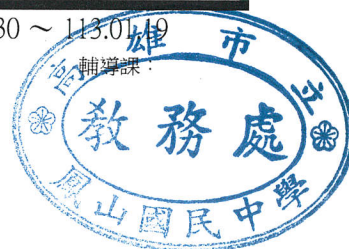 30 ~ 113.01.19
輔導課：
高雄市立
教務處
鳳山國民中學